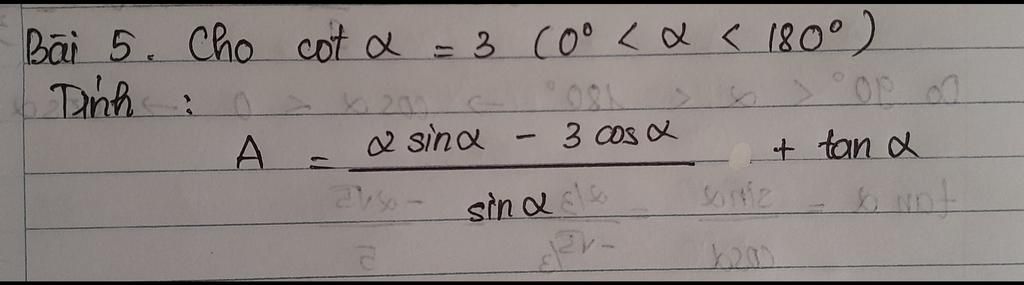 Bài 5. Cho cot α = 3 (0° < α < 180°)
Tính :
A = (2 sin α - 3 cos α) / sin α + tan α